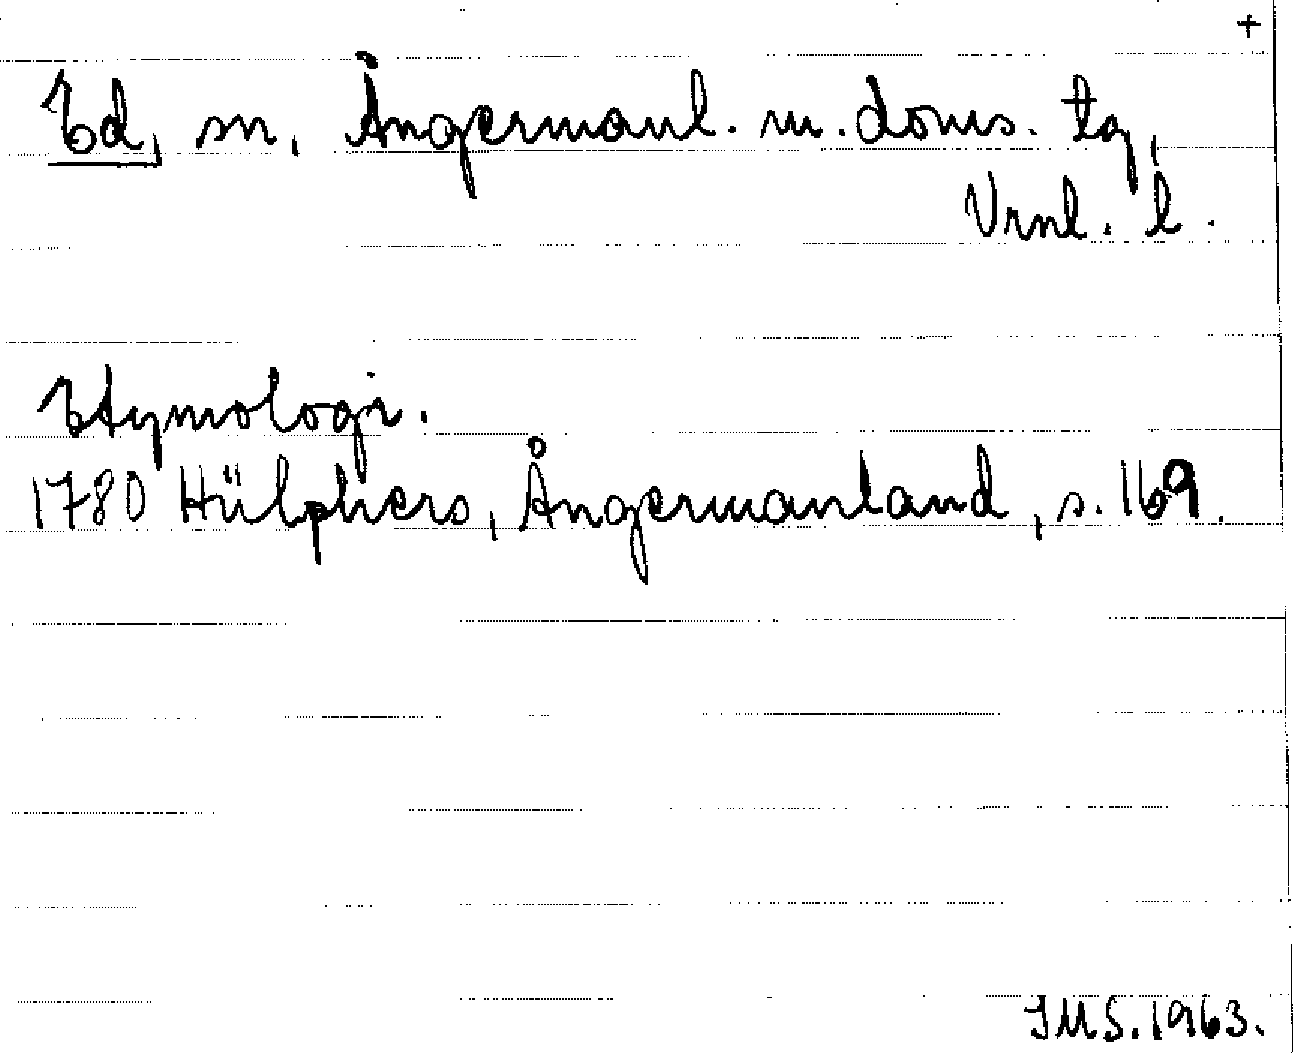 +
Ed, sn, Ångermanl. m. doms. tg,
Vrnl. l.
Etymologi.
1780 Hülphers, Ångermanland, s. 169.
IMS. 1963.